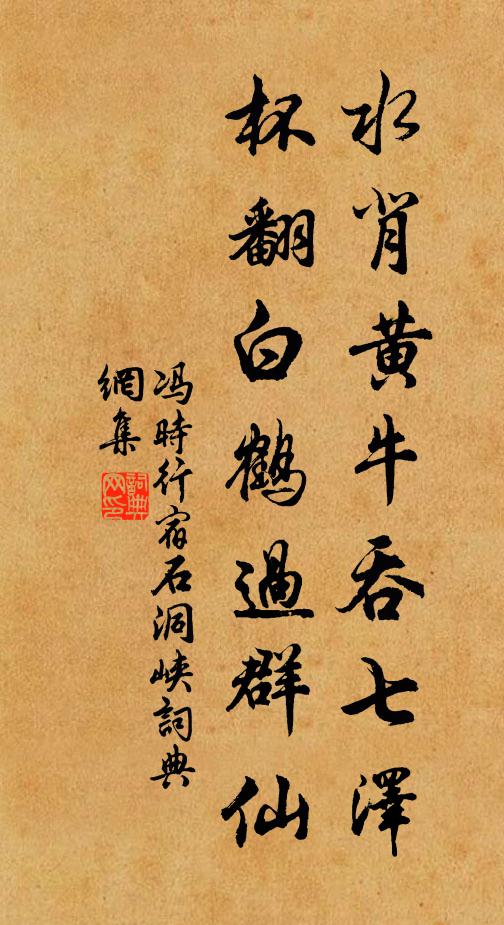 水背黄牛吞七澤
杯翻白鶴過群仙
馮時行宿石洞峽詞典
網集
詞典
网印